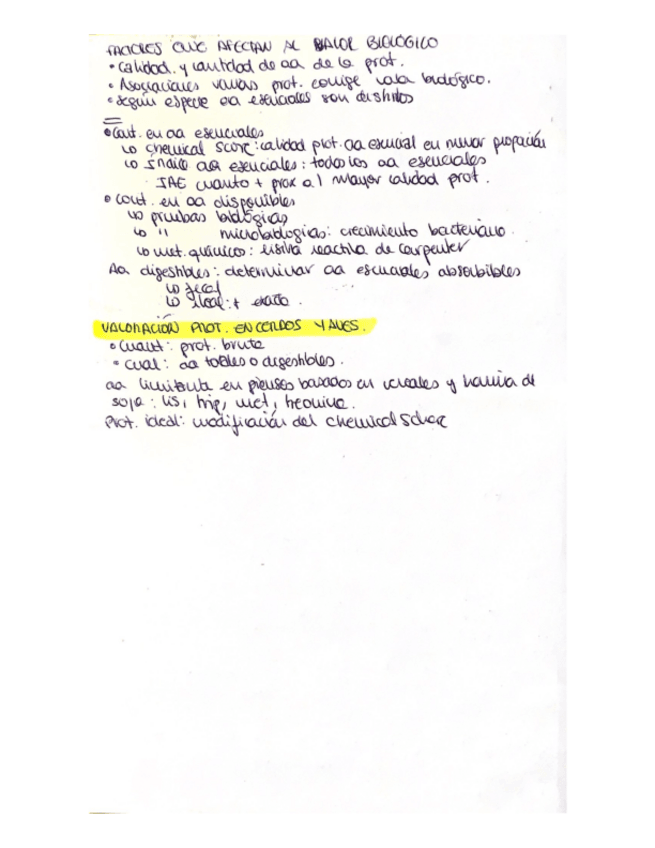 FACTORES QUE AFECTAN AL VALOR BIOLÓGICO
• Calidad y cantidad de aa de la prot.
• Asociaciones varias prot. corrige valor biológico.
• Según especie aa esenciales son distintos
=
• Cont. en aa esenciales
↳ chemical score: calidad prot. aa esencial en menor proporción
↳ índice aa esenciales: todos los aa esenciales
· IAE cuanto + prox a 1 mayor calidad prot.
• Cont. en aa disponibles
↳ pruebas biológicas
↳ " microbiologías: crecimiento bacteriano.
↳ met. químico: lisina reactiva de Carpenter
Aa digestibles: determinar aa esenciales absorbibles
↳ fecal
↳ ileal: + exacto.
VALORACIÓN PROT. EN CERDOS Y AVES.
• Cuant: prot. bruta
• Cual: aa totales o digestibles.
aa limitante en piensos basados en cereales y harina de
soja: lis, trip, met, treonina.
Prot. ideal: modificación del chemical Score